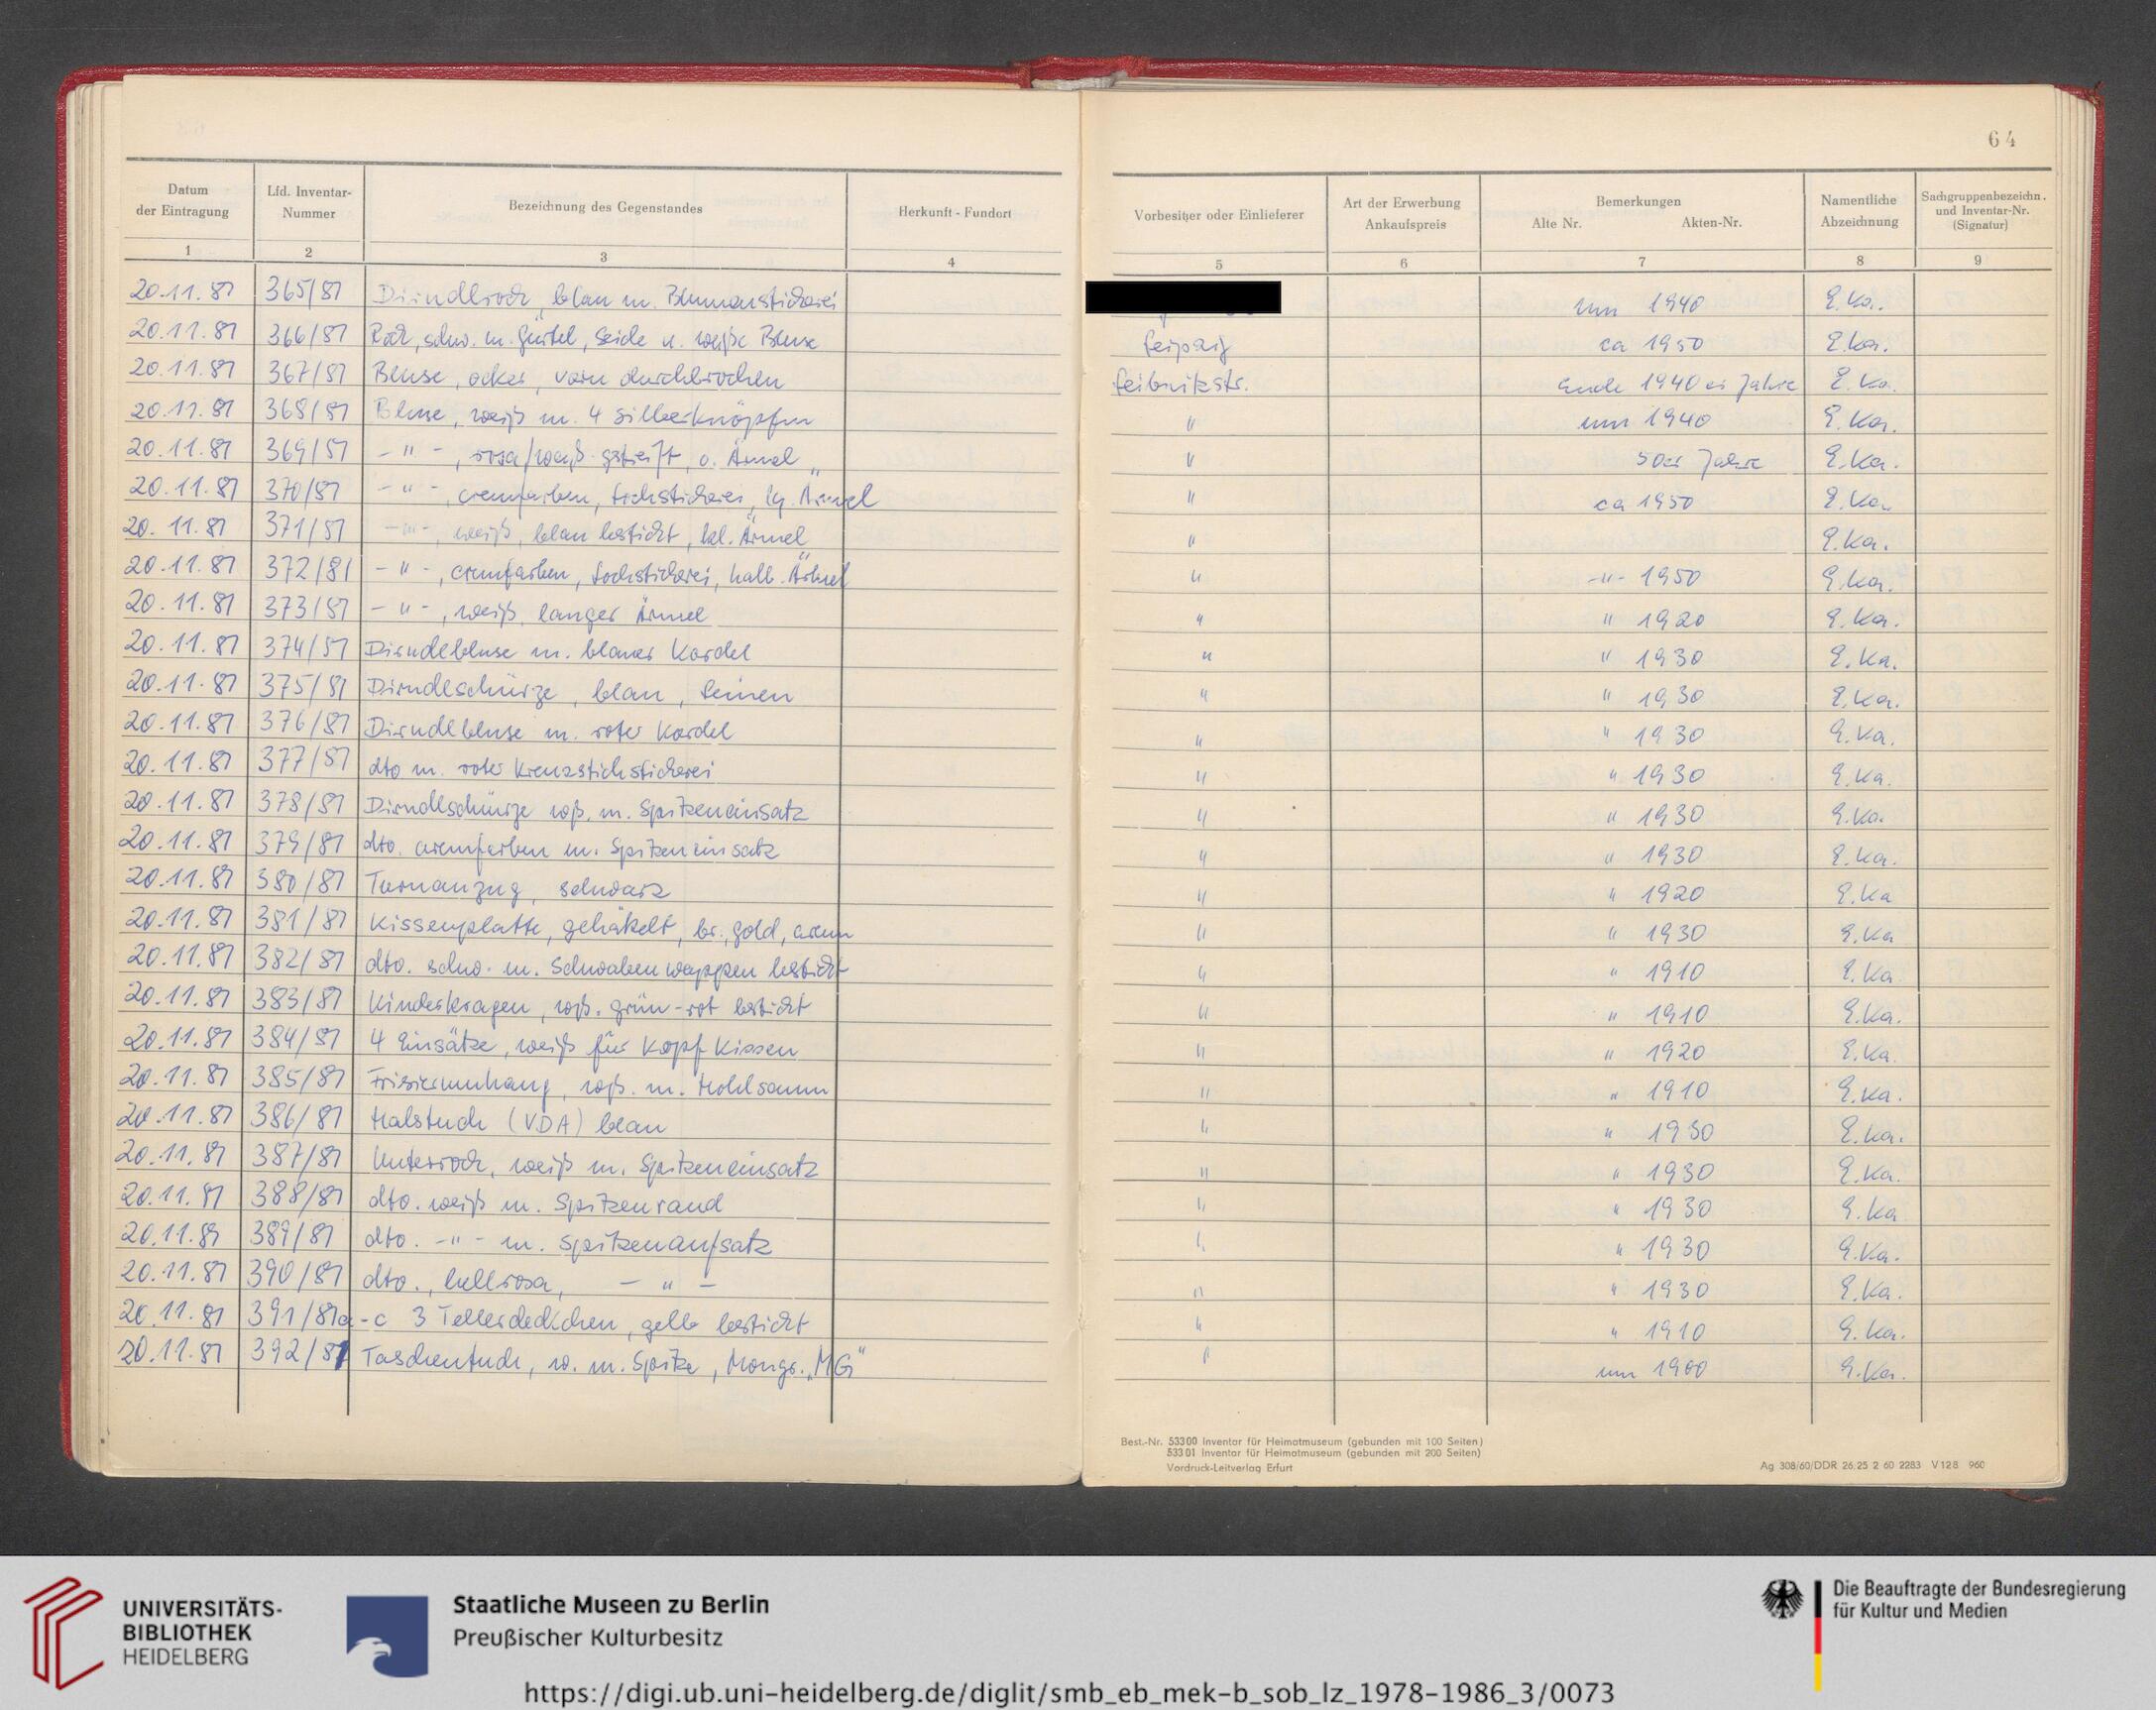 64
Datum der Eintragung | Lfd. Inventar-Nummer | Bezeichnung des Gegenstandes | Herkunft - Fundort | Vorbesitzer oder Einlieferer | Art der Erwerbung Ankaufspreis | Bemerkungen Alte Nr. Akten-Nr. | Namentliche Abzeichnung | Sachgruppenbezeichn. und Inventar-Nr. (Signatur)
1 2 3 4 5 6 7 8 9
20.11.81 365/81 Dirndlrock, blau m. Blumenstickerei um 1940 E.Ka.
20.11.81 366/81 Rock, schw. m. Gürtel, Seide u. weiße Bluse Leipzig ca 1950 E.Ka.
20.11.81 367/81 Bluse, ocker, vorn durchbrochen Leibnizstr. Ende 1940er Jahre E.Ka.
20.11.81 368/81 Bluse, weiß m. 4 Silberknöpfen " um 1940 E.Ka.
20.11.81 369/81 - " - , rosa/weiß gestreift, o. Ärmel " 50er Jahre E.Ka.
20.11.81 370/81 - " - , cremfarben, Lochstickerei, lg. Ärmel " ca 1950 E.Ka.
20.11.81 371/81 - " - , weiß, blau bestickt, kl. Ärmel " E.Ka.
20.11.81 372/81 - " - , cremfarben, Lochstickerei, halb. Ärmel " - " - 1950 E.Ka.
20.11.81 373/81 - " - , weiß, langer Ärmel " " 1920 E.Ka.
20.11.81 374/81 Dirndlbluse m. blauer Kordel " " 1930 E.Ka.
20.11.81 375/81 Dirndlschürze, blau, Leinen " " 1930 E.Ka.
20.11.81 376/81 Dirndlbluse m. roter Kordel " " 1930 E.Ka.
20.11.81 377/81 dto m. roter Kreuzstichstickerei " " 1930 E.Ka.
20.11.81 378/81 Dirndlschürze wß. m. Spitzeneinsatz " " 1930 E.Ka.
20.11.81 379/81 dto. cremfarben m. Spitzeneinsatz " " 1930 E.Ka.
20.11.81 380/81 Turnanzug, schwarz " " 1920 E.Ka
20.11.81 381/81 Kissenplatte, gehäkelt, br., gold, crem " " 1930 E.Ka
20.11.81 382/81 dto. schw. m. Schwabenwappen bestickt " " 1910 E.Ka
20.11.81 383/81 Kinderkragen, wß. grün-rot bestickt " " 1910 E.Ka.
20.11.81 384/81 4 Einsätze, weiß für Kopfkissen " " 1920 E.Ka.
20.11.81 385/81 Frisierumhang, wß. m. Hohlsaum " " 1910 E.Ka.
20.11.81 386/81 Halstuch (VDA) blau " " 1930 E.Ka.
20.11.81 387/81 Unterrock, weiß m. Spitzeneinsatz " " 1930 E.Ka.
20.11.81 388/81 dto. weiß m. Spitzenrand " " 1930 E.Ka
20.11.81 389/81 dto. - " - m. Spitzenaufsatz " " 1930 E.Ka.
20.11.81 390/81 dto., hellrosa, - " - " " 1930 E.Ka.
20.11.81 391/81a-c 3 Tellerdeckchen, gelb bestickt " " 1910 E.Ka.
20.11.81 392/81 Taschentuch, w. m. Spitze, Mongr. „MG“ " um 1900 E.Ka.
Best.-Nr. 53300 Inventar für Heimatmuseum (gebunden mit 100 Seiten)
53301 Inventar für Heimatmuseum (gebunden mit 200 Seiten)
Vordruck-Leitverlag Erfurt
Ag 308/60/DDR 26 25 2 60 2283 V 128 960
UNIVERSITÄTS-
BIBLIOTHEK
HEIDELBERG
Staatliche Museen zu Berlin
Preußischer Kulturbesitz
Die Beauftragte der Bundesregierung
für Kultur und Medien
https://digi.ub.uni-heidelberg.de/diglit/smb_eb_mek-b_sob_lz_1978-1986_3/0073